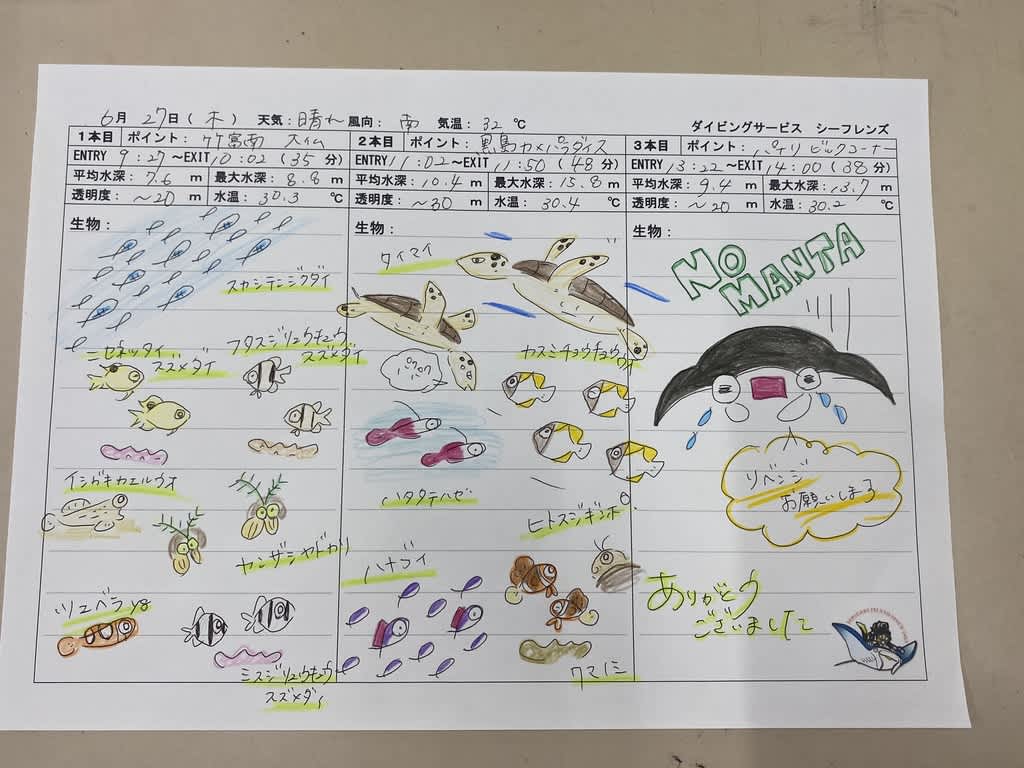 6月 27日 (木) 天気：晴れ 風向： 南 気温：32 ℃
ダイビングサービス シーフレンズ
1本目 ポイント： 竹富南 大仏
ENTRY 9：27 ～EXIT 10：02 (35 分)
平均水深： 7.6 m 最大水深： 8.8 m
透明度： ～20 m 水温： 30.3 ℃
生物：
スカシテンジクダイ
ニセネッタイ
スズメダイ
フタスジリュウキュウ
スズメダイ
イシガキカエルウオ
ヤンザシヤドカリ
ツユベラyg
ミスジリュウキュウ
スズメダイ
2本目 ポイント： 黒島カメパラダイス
ENTRY 11：02～EXIT 11：50 (48 分)
平均水深： 10.4 m 最大水深： 15.8 m
透明度： ～30 m 水温： 30.4 ℃
生物：
タイマイ
カスミチョウチョウウオ
パクパク
ハタタテハゼ
ヒトスジギンポ
ハナゴイ
クマノミ
3本目 ポイント： パナリ ビックコーナー
ENTRY 13：22～EXIT 14：00 (38 分)
平均水深： 9.4 m 最大水深： 13.7 m
透明度： ～20 m 水温： 30.2 ℃
生物：
NO
MANTA
リベンジ
お願いしまう
ありがとう
ございました